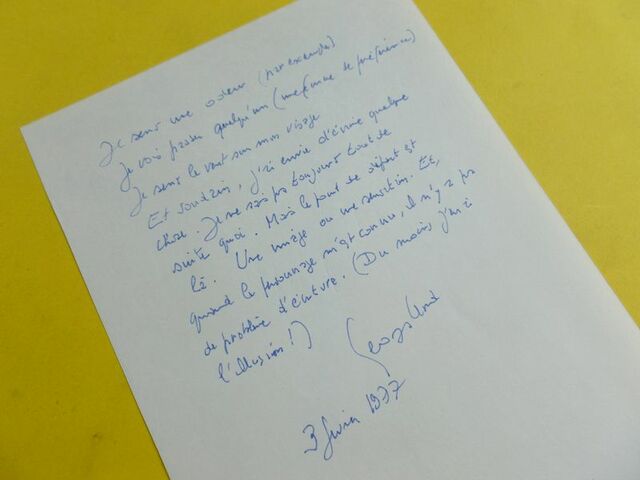 Je sens une odeur (par exemple)
Je vois passer quelqu'un (une femme de préférence)
Je sens le vent sur mon visage
Et soudain, j'ai envie d'écrire quelque
chose. Je ne sais pas toujours tout de
suite quoi. Mais le point de départ est
là. Une image ou une sensation. Et,
quand le personnage m'est connu, il n'y a pas
de problème d'écriture. (Du moins j'en ai
l'illusion!)
3 février 1977